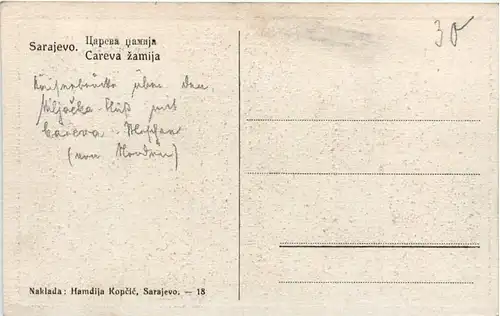 Sarajevo.
Царева џамија
Careva žamija
30
über den
Miljačka-Fluß mit
Careva-Moschee
(von Norden)
Naklada: Hamdija Kopčić, Sarajevo. — 18